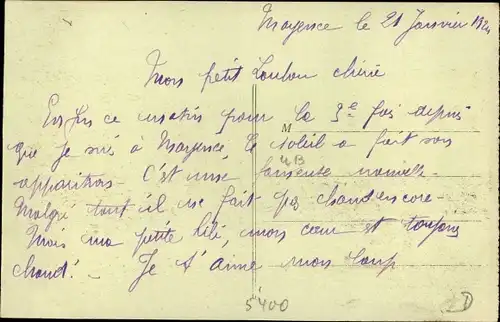 Mayence le 21 Janvier 1924
Mon petit Loulou chérie
Enfin ce matin pour la 3e fois depuis
que je suis à Mayence, le soleil a fait son
apparition - C'est une fameuse nouvelle -
Malgré tout il ne fait pas chaud encore -
Mais ma petite Lili, mon cœur est toujours
chaud! - Je t'aime mon loup
M
5400
D